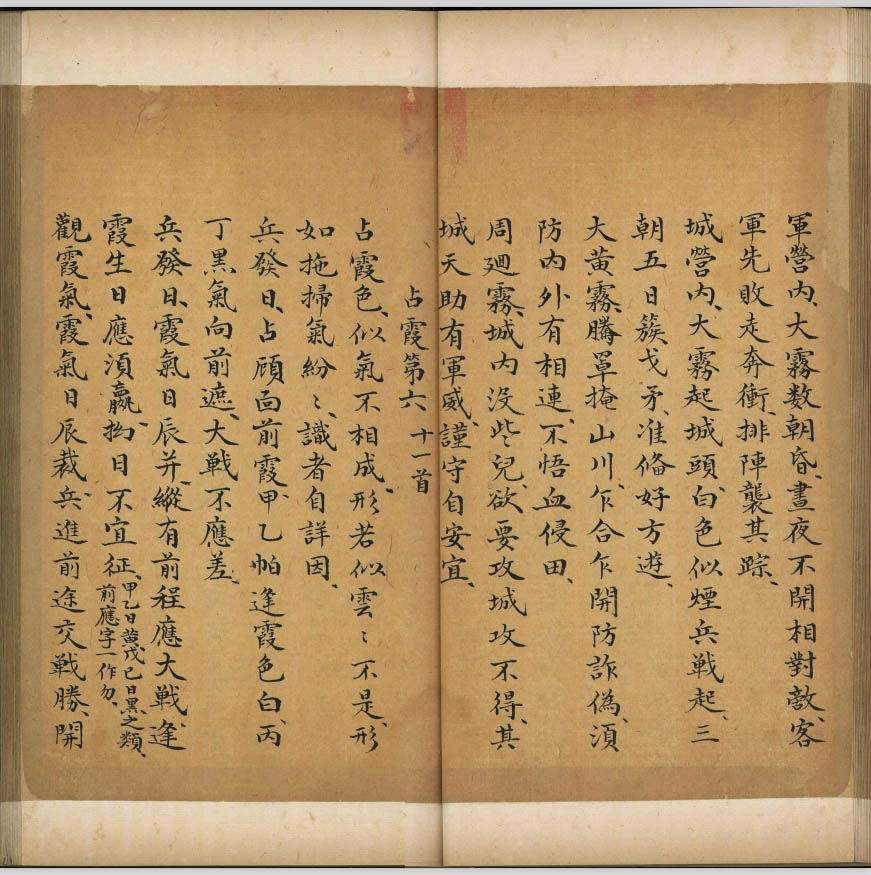 軍營內、大霧数朝昏、晝夜不開相對敵、客
軍先敗走奔衝、排陣襲其踪、
城營內、大霧起城頭、白色似煙兵戰起、三
朝五日簇戈矛、准俻好方遊、
大黃霧、騰罩掩山川、乍合乍開防詐偽、湏
防內外有相連、不悟血侵田、
周廻霧、城內没些兒、欲要攻城攻不得、其
城天助有軍威、謹守自安宜、
占霞第六 十一首
占霞色、似氣不相成、形若似雲〻不是、形
如拖掃氣紛〻、識者自詳因、
兵發日、占顧面前霞、甲乙怕逢霞色白、丙
丁黑氣向前遮、大戰不應差、
兵發日、霞氣日辰并、縱有前程應大戰、逢
霞生日應湏贏、拗日不宜征、甲乙日黃、戊己日黑之類、前應字一作勿、
觀霞氣、霞氣日辰裁、兵進前途交戰勝、開